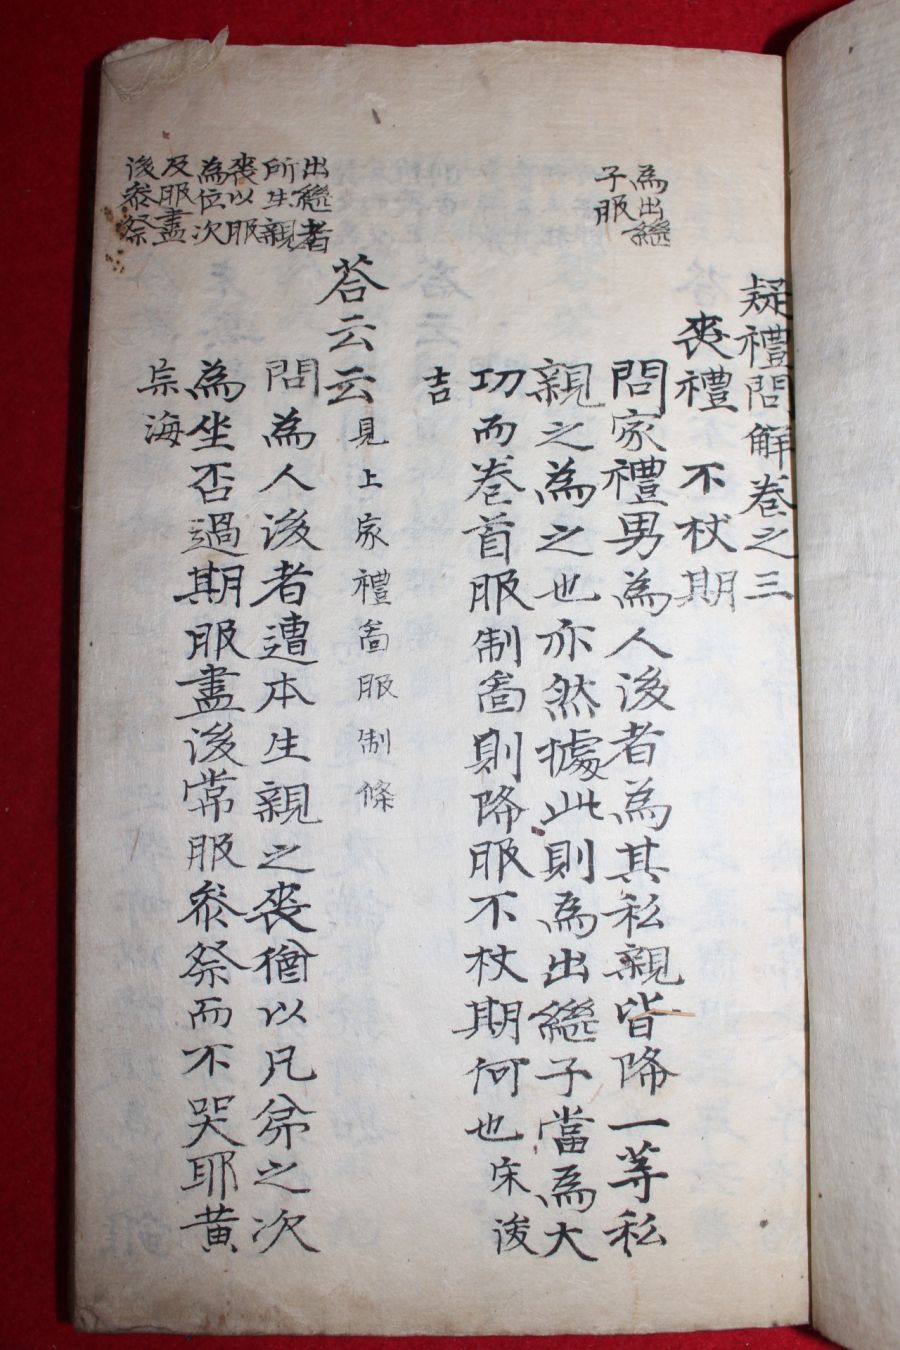 疑禮問解卷之三
喪禮 不杖期
為出繼
子服
問家禮男為人後者為其私親皆降一等私
親之為之也亦然據此則為出繼子當為大
功而卷首服制圖則降服不杖期何也宋浚
吉
答云云見上家禮圖服制條
出繼者
所生親
喪以服
為位次
及服盡
後參祭
問為人後者遭本生親之喪猶以凡弟之次
為坐否過期服盡後常服參祭而不哭耶黃
宗海